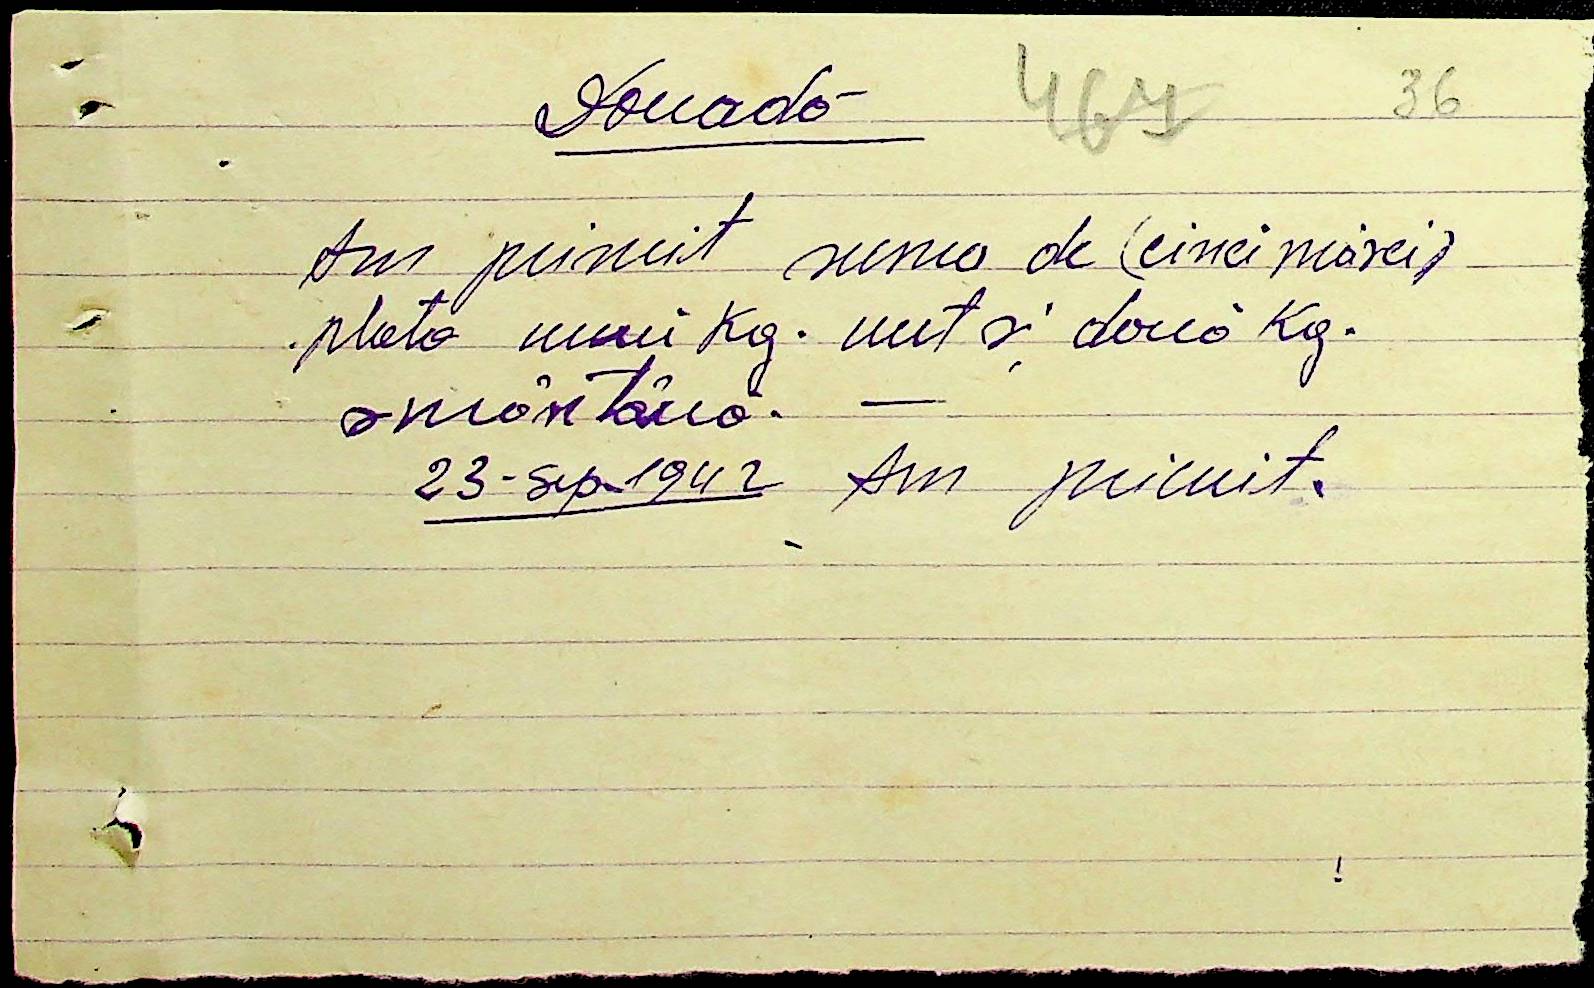 Dovadă 467 36
Am primit suma de (cinci mărci)
plata unui Kg. unt și două Kg.
smântână. —
23-Sep. 1942 Am primit.